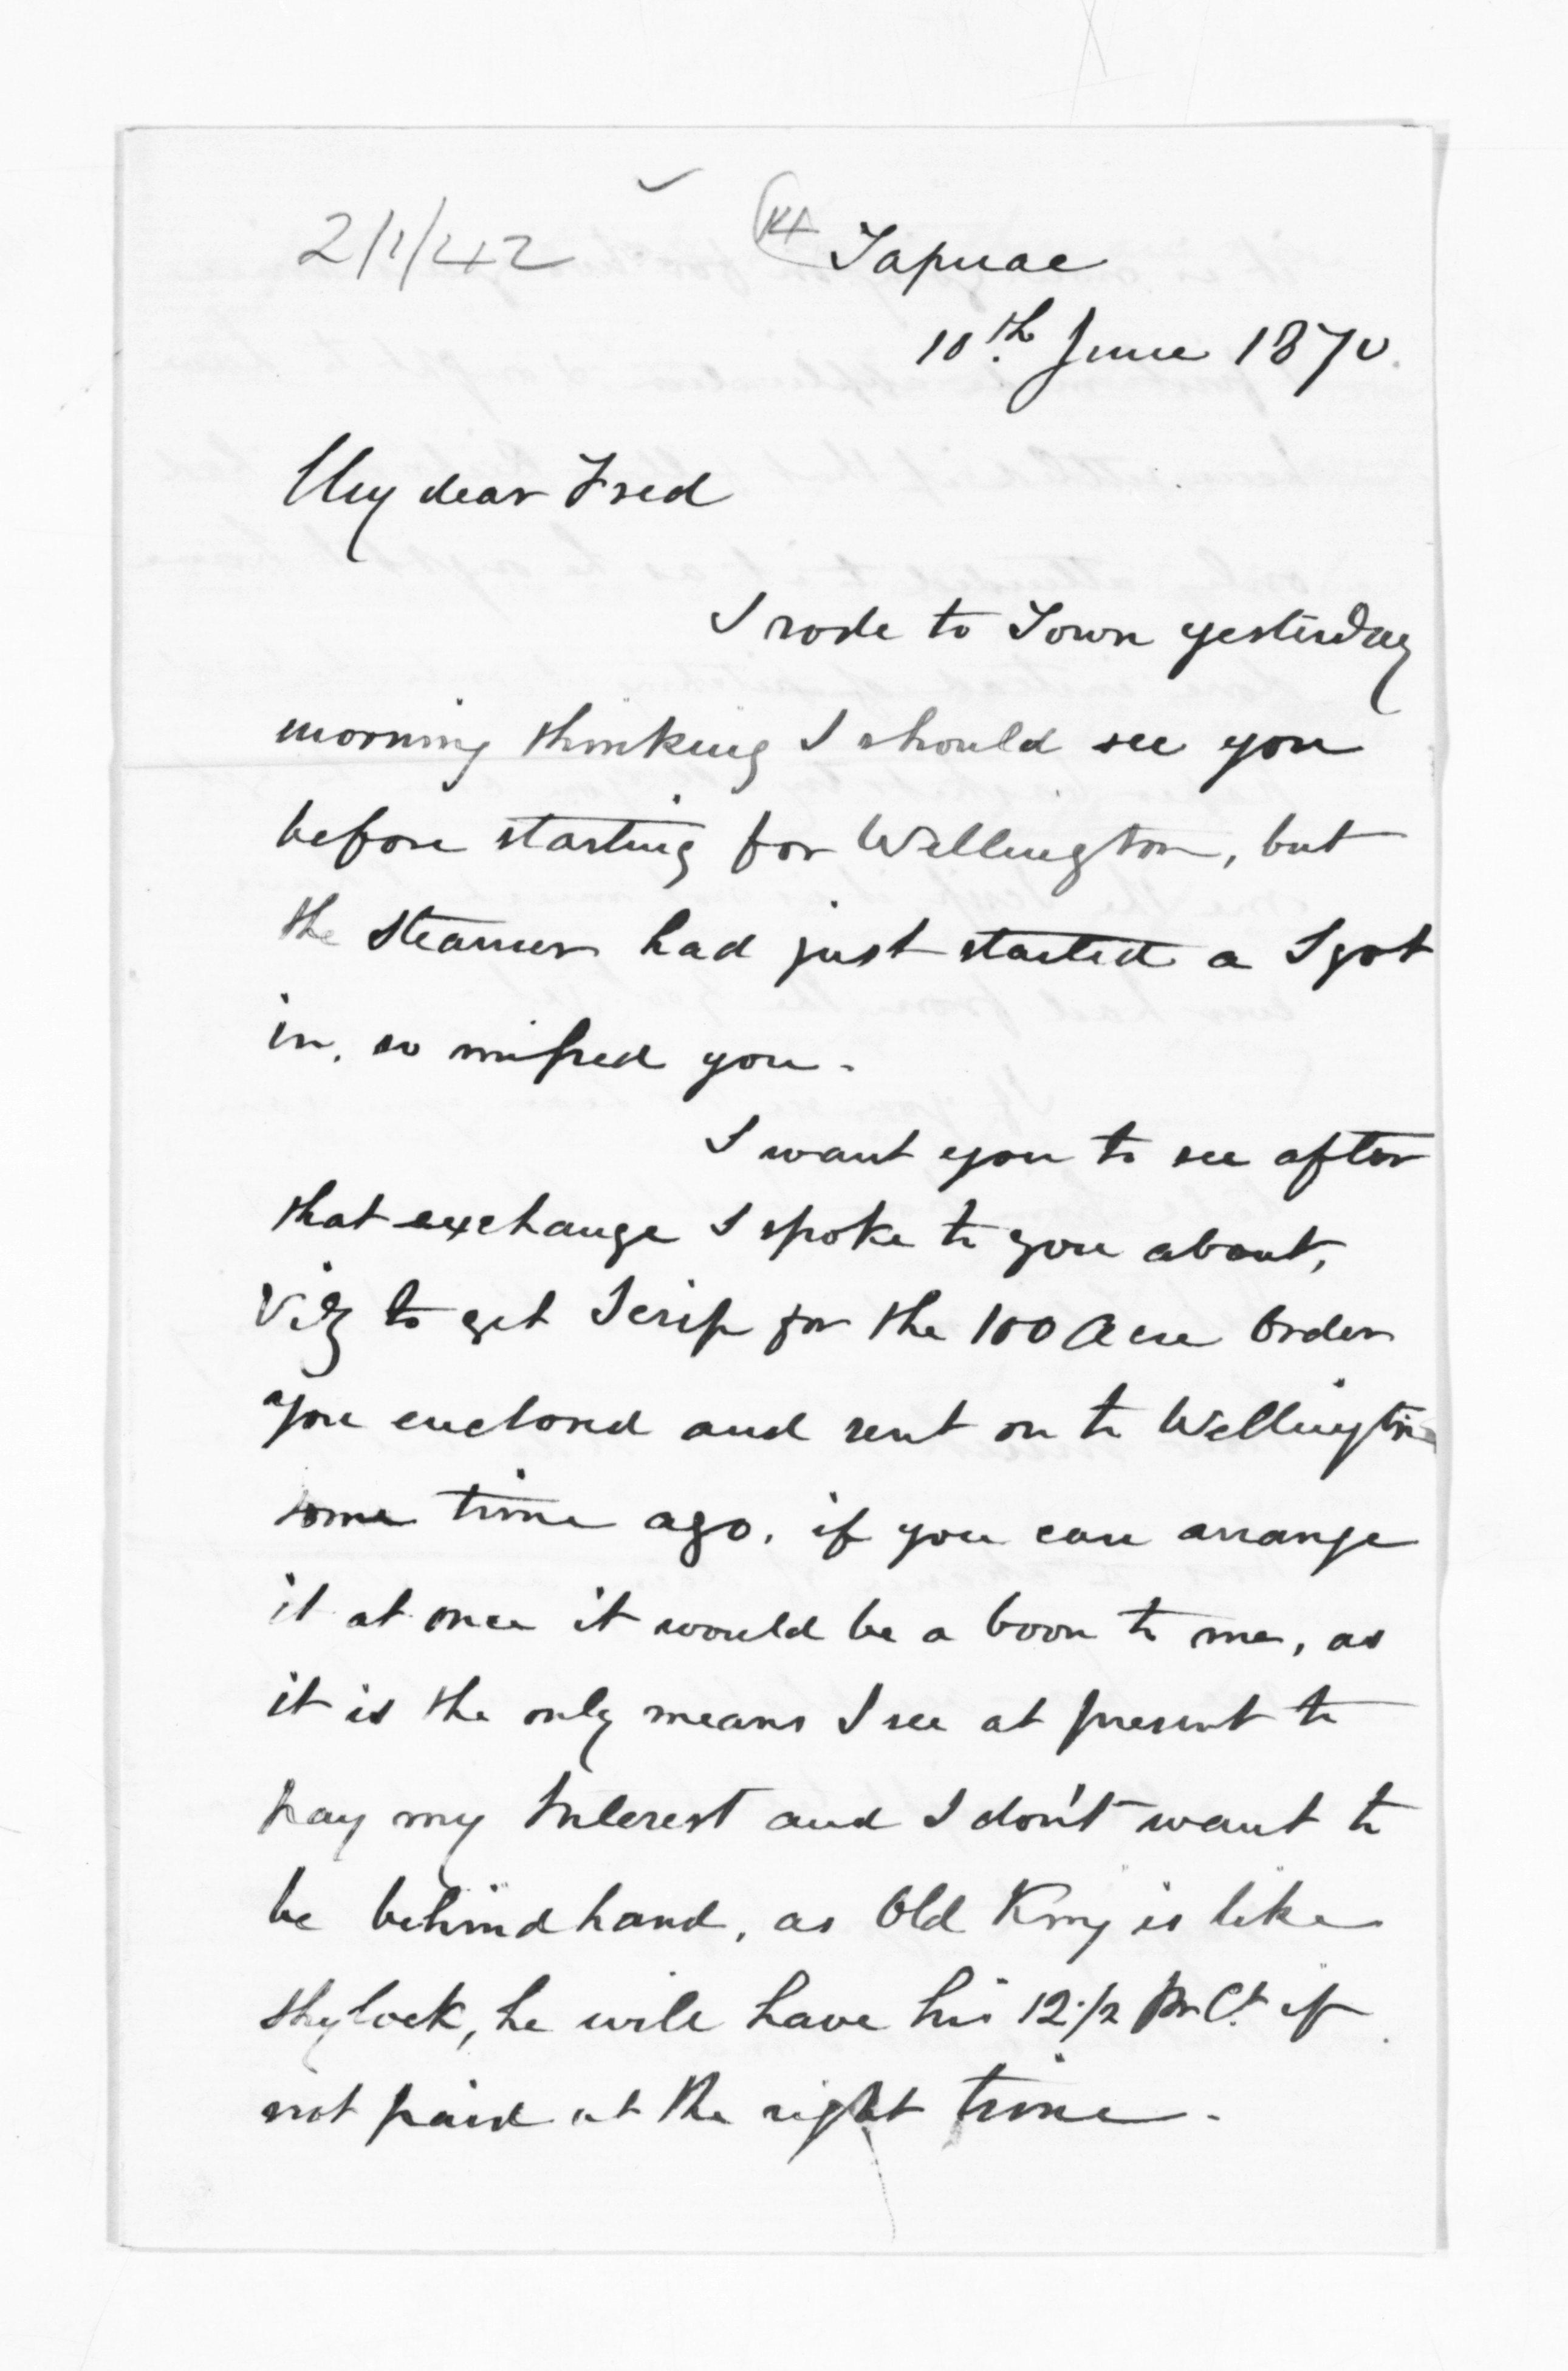 2/1/42
Tapuae
10th June 1870.
My dear Fred
I rode to Town yesterday
morning thinking I should see you
before starting for Wellington, but
the steamer had just started a I got
in, so missed you.
I want you to see after
that exchange I spoke to you about,
Viz to get Scrip for the 100 Acre Order
you enclosed and sent on to Wellington
some time ago, if you can arrange
it at once it would be a boon to me, as
it is the only means I see at present to
pay my Interest and I don't want to
be behind hand, as Old King is like
Shylock, he will have his 12 1/2 Pr Ct. if
not paid at the right time.